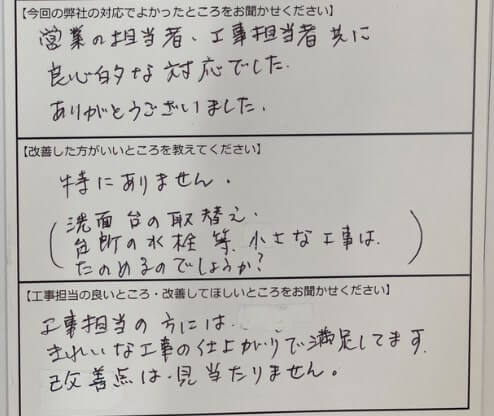 【今回の弊社の対応でよかったところをお聞かせください】
営業の担当者、工事担当者共に
良心的な対応でした。
ありがとうございました。
【改善した方がいいところを教えてください】
特にありません。
(洗面台の取替え、
台所の水栓等、小さな工事は、
たのめるのでしょうか?)
【工事担当の良いところ・改善してほしいところをお聞かせください】
工事担当の方には
きれいな工事の仕上がりで満足してます。
改善点は見当たりません。